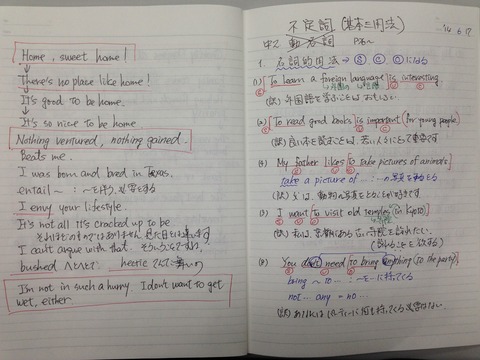 Home, sweet home!
There's no place like home!
It's good to be home.
It's so nice to be home
Nothing ventured, nothing gained.
Beats me.
I was born and bred in Texas.
entail ~ : ~を伴う,必要とする
I envy your lifestyle.
It's not all it's cracked up to be
それほどのものではありません
I can't argue with that.
bushed へとへとで hectic てんてこ舞いの
I'm not in such a hurry. I don't want to get
wet, either.
不定詞(基本三用法)
'14 6.17
中2 動名詞
1. 名詞的用法 → S C O になる
(1) [To learn a foreign language] is interesting
(訳) 外国語を学ぶことはおもしろい。
(2) [To read good books] is important (for young people)
(訳) 良い本を読むことは、若い人々にとって重要です
(4) My father likes [to take pictures of animals]
take a picture of ... : ...の写真をとる
(訳) 父は、動物の写真をとることが好きです。
I want [to visit old temples (in Kyoto)]
(訳) 私は、京都にある古い寺院を訪れたい。
(訪れることを欲する)
You don't need [to bring anything (to the party)]
bring ~ to ... : ~を...に持ってくる
not ... any = no ...
(訳) あなたはパーティーに何も持ってくる必要はない。